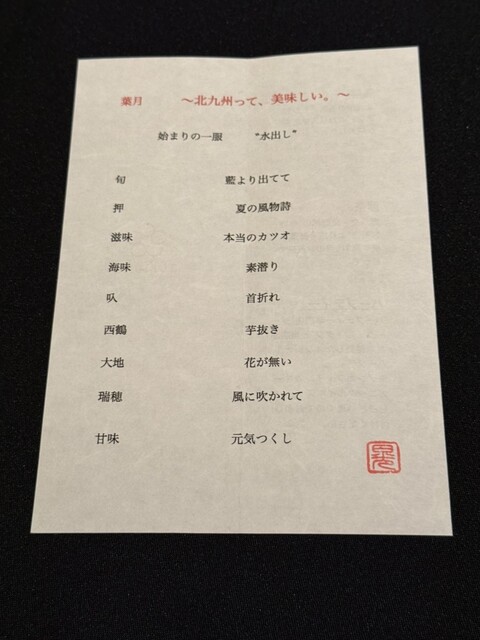 葉月　～北九州って、美味しい。～
始まりの一服　"水出し"
旬　藍より出でて
押　夏の風物詩
滋味　本当のカツオ
海味　素潜り
叺　首折れ
西鶴　芋抜き
大地　花が無い
瑞穂　風に吹かれて
甘味　元気つくし